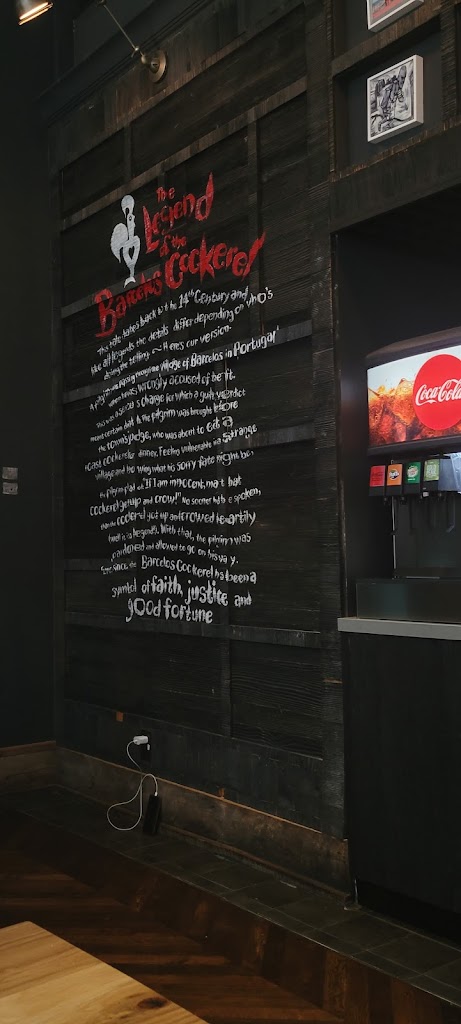 The
Legend
of the
Barcelos Cockerel
This tale dates back to the 14th Century and
like all legends the details differ depending on who's
doing the telling ~ Here's our version.
A pilgrim was passing through the village of Barcelos in Portugal
when he was wrongly accused of theft.
This was a serious charge for which a guilty verdict
meant certain death. The pilgrim was brought before
the town's judge, who was about to eat a
roast cockerel for dinner. Feeling vulnerable in a strange
village and knowing what his sorry fate might be,
the pilgrim pleaded "If I am innocent, may that
cockerel get up and crow!" No sooner had he spoken,
than the cockerel got up and crowed heartily
(well it is a legend). With that, the pilgrim was
pardoned and allowed to go on his way.
Ever since, the Barcelos Cockerel has been a
symbol of faith, justice and
good fortune
Coca-Cola